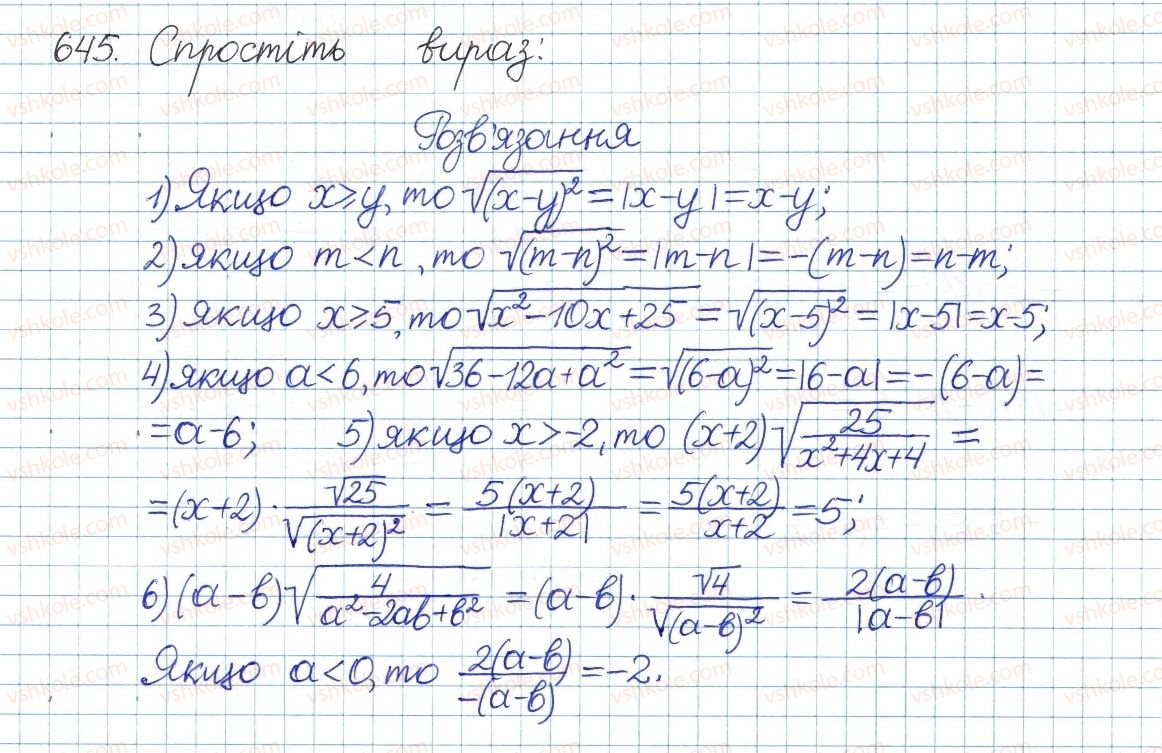 645. Спростіть вираз:
Розв'язання
1) Якщо x≥y, то √(x-y)² = |x-y| = x-y;
2) якщо m<n, то √(m-n)² = |m-n| = -(m-n) = n-m;
3) якщо x≥5, то √x²-10x+25 = √(x-5)² = |x-5| = x-5;
4) якщо a<6, то √36-12a+a² = √(6-a)² = |6-a| = -(6-a) =
= a-6; 5) якщо x>-2, то (x+2)√25/(x²+4x+4) =
= (x+2) · √25/√(x+2)² = 5(x+2)/|x+2| = 5(x+2)/x+2 = 5;
6) (a-b)√4/(a²-2ab+b²) = (a-b) · √4/√(a-b)² = 2(a-b)/|a-b| .
Якщо a<0, то 2(a-b)/-(a-b) = -2.